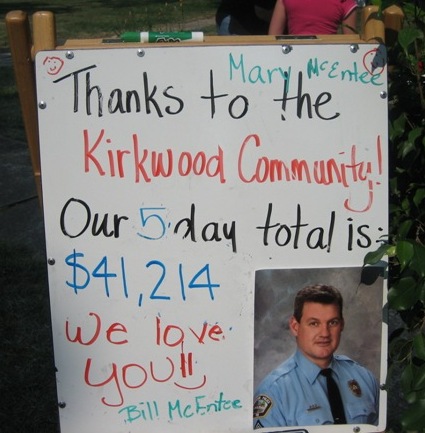 Mary McEntee
Thanks to the
Kirkwood Community!
Our 5 day total is:
$41,214
We love
you!!
Bill McEntee